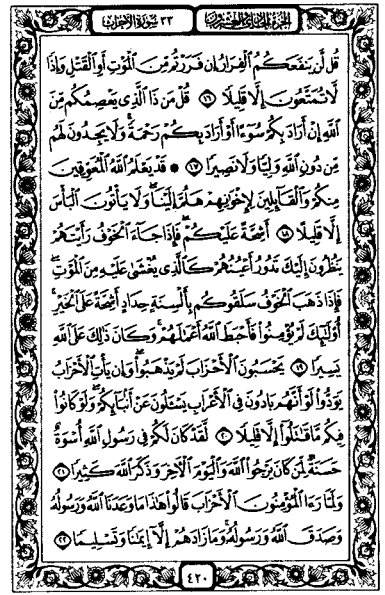 الجزء الحادي والعشرون ٣٣ سورة الأحزاب
قُل لَّن يَنفَعَكُمُ الْفِرَارُ إِن فَرَرْتُم مِّنَ الْمَوْتِ أَوِ الْقَتْلِ وَإِذًا
لَّا تُمَتَّعُونَ إِلَّا قَلِيلًا ١٦ قُلْ مَن ذَا الَّذِي يَعْصِمُكُم مِّنَ
اللَّهِ إِنْ أَرَادَ بِكُمْ سُوءًا أَوْ أَرَادَ بِكُمْ رَحْمَةً وَلَا يَجِدُونَ لَهُم
مِّن دُونِ اللَّهِ وَلِيًّا وَلَا نَصِيرًا ١٧ ۞ قَدْ يَعْلَمُ اللَّهُ الْمُعَوِّقِينَ
مِنكُمْ وَالْقَائِلِينَ لِإِخْوَانِهِمْ هَلُمَّ إِلَيْنَا وَلَا يَأْتُونَ الْبَأْسَ
إِلَّا قَلِيلًا ١٨ أَشِحَّةً عَلَيْكُمْ فَإِذَا جَاءَ الْخَوْفُ رَأَيْتَهُمْ
يَنظُرُونَ إِلَيْكَ تَدُورُ أَعْيُنُهُمْ كَالَّذِي يُغْشَى عَلَيْهِ مِنَ الْمَوْتِ
فَإِذَا ذَهَبَ الْخَوْفُ سَلَقُوكُم بِأَلْسِنَةٍ حِدَادٍ أَشِحَّةً عَلَى الْخَيْرِ
أُولَٰئِكَ لَمْ يُؤْمِنُوا فَأَحْبَطَ اللَّهُ أَعْمَالَهُمْ وَكَانَ ذَٰلِكَ عَلَى اللَّهِ
يَسِيرًا ١٩ يَحْسَبُونَ الْأَحْزَابَ لَمْ يَذْهَبُوا وَإِن يَأْتِ الْأَحْزَابُ
يَوَدُّوا لَوْ أَنَّهُم بَادُونَ فِي الْأَعْرَابِ يَسْأَلُونَ عَنْ أَنبَائِكُمْ وَلَوْ كَانُوا
فِيكُم مَّا قَاتَلُوا إِلَّا قَلِيلًا ٢٠ لَّقَدْ كَانَ لَكُمْ فِي رَسُولِ اللَّهِ أُسْوَةٌ
حَسَنَةٌ لِّمَن كَانَ يَرْجُو اللَّهَ وَالْيَوْمَ الْآخِرَ وَذَكَرَ اللَّهَ كَثِيرًا ٢١
وَلَمَّا رَأَى الْمُؤْمِنُونَ الْأَحْزَابَ قَالُوا هَٰذَا مَا وَعَدَنَا اللَّهُ وَرَسُولُهُ
وَصَدَقَ اللَّهُ وَرَسُولُهُ وَمَا زَادَهُمْ إِلَّا إِيمَانًا وَتَسْلِيمًا ٢٢
٤٢٠